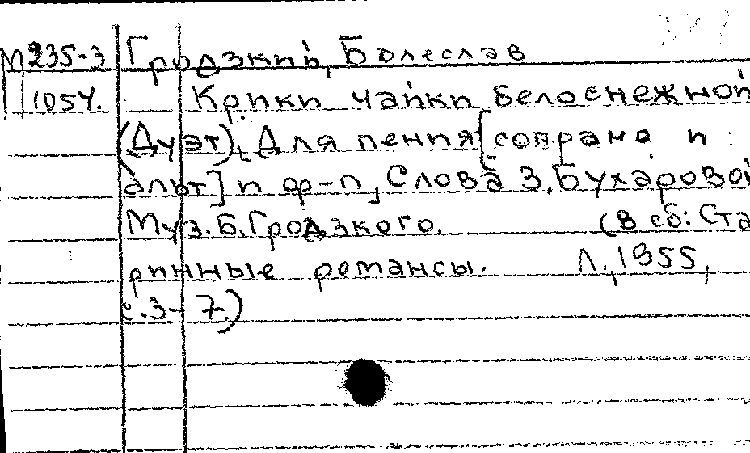 М235-3 Гродзкий, Болеслав
1054. Крики чайки белоснежной
(Дуэт). Для пения [сопрано и
альт] и ф-п, Слова З. Бухаровой
Муз. Б. Гродзкого. (В сб: Ста
ринные романсы. Л., 1955,
с. 3-7.)